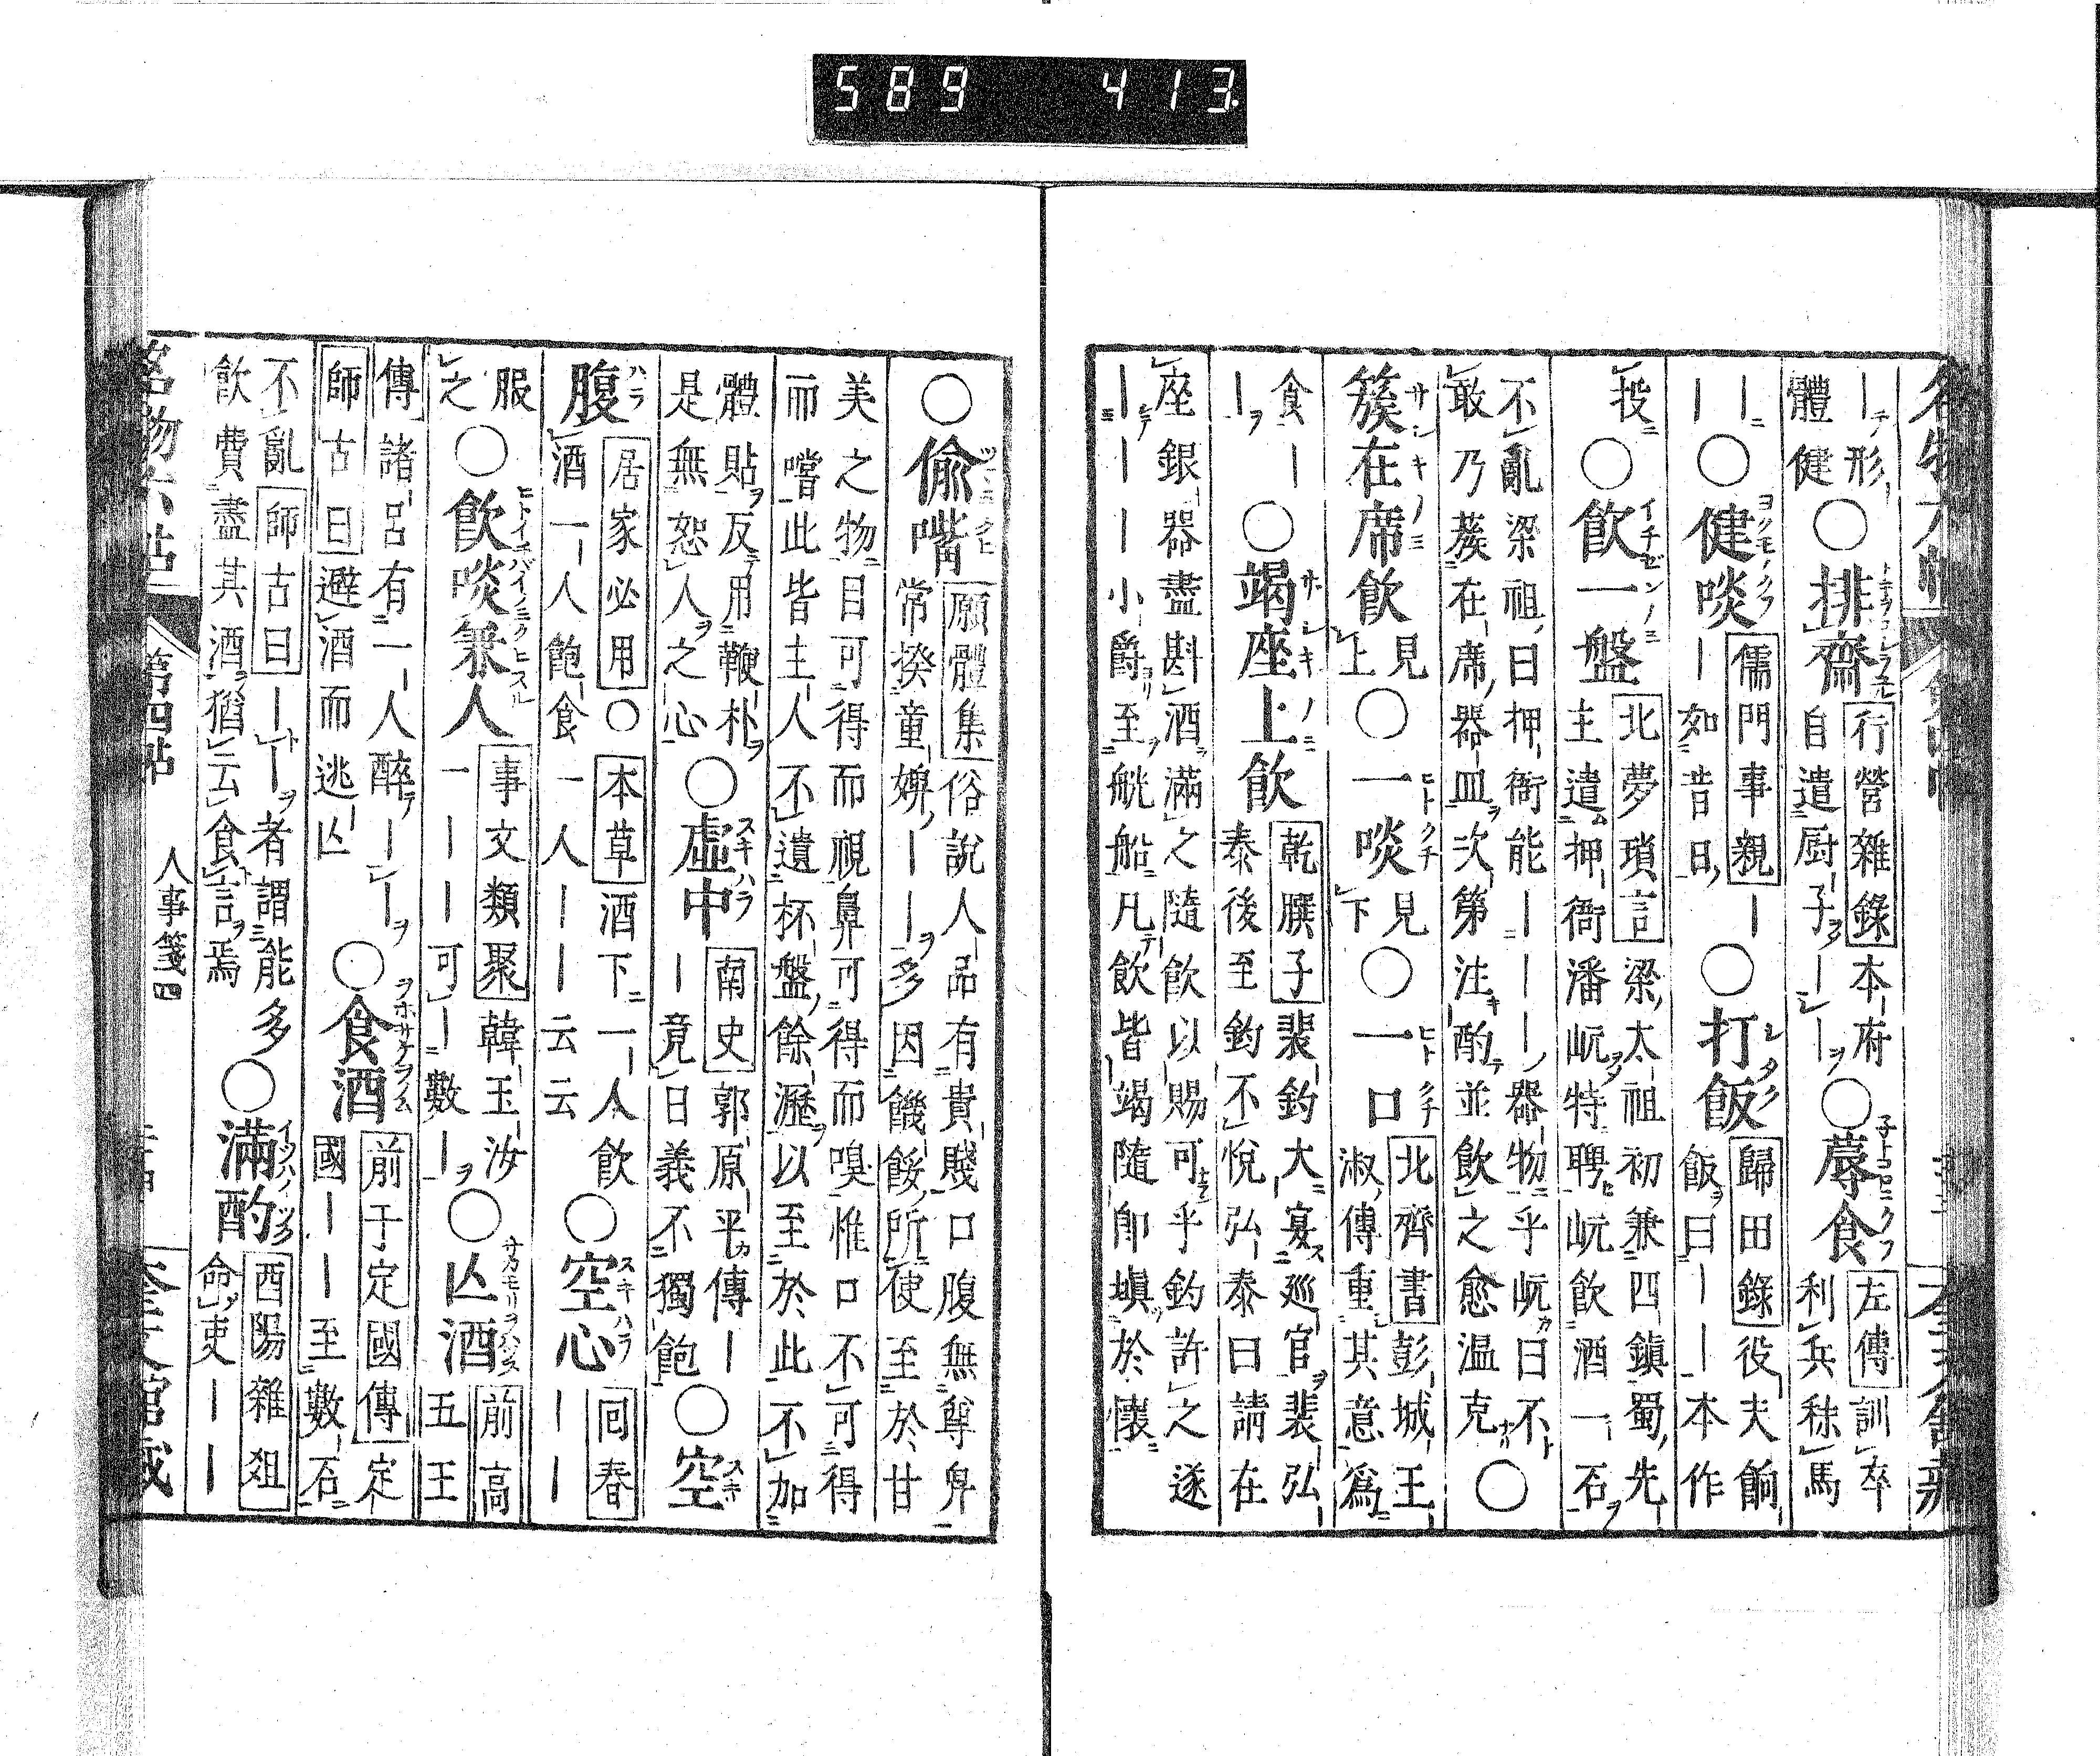 589 413.
｜形
體健
○排齋
行營雜錄 本府
自遣厨子｜｜
○蓐食
左傳 訓卒
利兵秣馬
｜
｜
○健啖
儒門事親｜
｜如昔日
○打飯
歸田錄 役夫餉
飯曰｜｜本作
投
○飲一盤
北夢瑣言 梁太祖初兼四鎮蜀先
主遣押衙潘岏特聘岏飲酒一石
不亂梁祖曰押衙能｜｜｜器物乎岏曰不
敢乃蔟在席器皿次第注酌並飲之愈温克
○
簇在席飲
見
上
○一啖
見
下
○一口
北齊書 彭城王
淑傳重其意為
食｜
｜
○竭座上飲
乾𦠆子 裴鈞大宴巡官裴弘
泰後至鈞不悅弘泰曰請在
座銀器盡斟酒滿之隨飲以賜可乎鈞許之遂
｜｜｜小爵至觥船凡飲皆竭隨卽塡於懷
○偷嘴
願體集 俗說人品有貴賤口腹無尊卑
常揆童婢｜｜多因饑餒所使至於甘
美之物目可得而視鼻可得而嗅惟口不可得
而嚐此皆主人不遺杯盤餘瀝以至於此不加
體貼反用鞭朴
是無恕人之心
○虛中
南史 郭原平傳｜
｜竟日義不獨飽
○空
腹
居家必用○本草 酒下一人飲
酒一人飽食一人｜｜云云
○空心
回春
｜｜
服
之
○飲啖兼人
事文類聚 韓玉汝
一｜｜可｜數｜
○亾酒
前高
五王
傳 諸呂有一人醉｜｜
師古曰 避酒而逃亾
○食酒
前于定國傳 定
國｜｜至數石
不亂 師古曰｜｜者謂能多
飲費盡其酒猶云食言焉
○滿酌
酉陽雜俎
命吏｜｜
第四帖
人事箋四